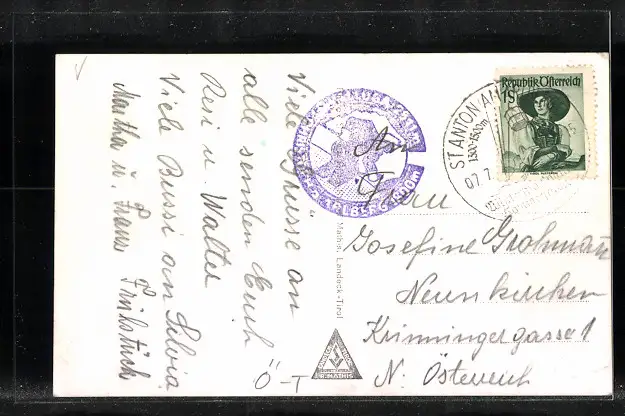 Viele Grüsse an
alle senden Euch
Resi u. Walter
Viele Bussi von Silvia
Martha u. Franz Frühstück
An
Frau
Josefine Grohmann
Neunkirchen
Krimmingergasse 1
N. Österreich
Ö-T
Republik Österreich
1S
ST. ANTON AM
1300-1500m
07.7.
Mathis, Landeck-Tirol
R. MATHIS
ARLBERG